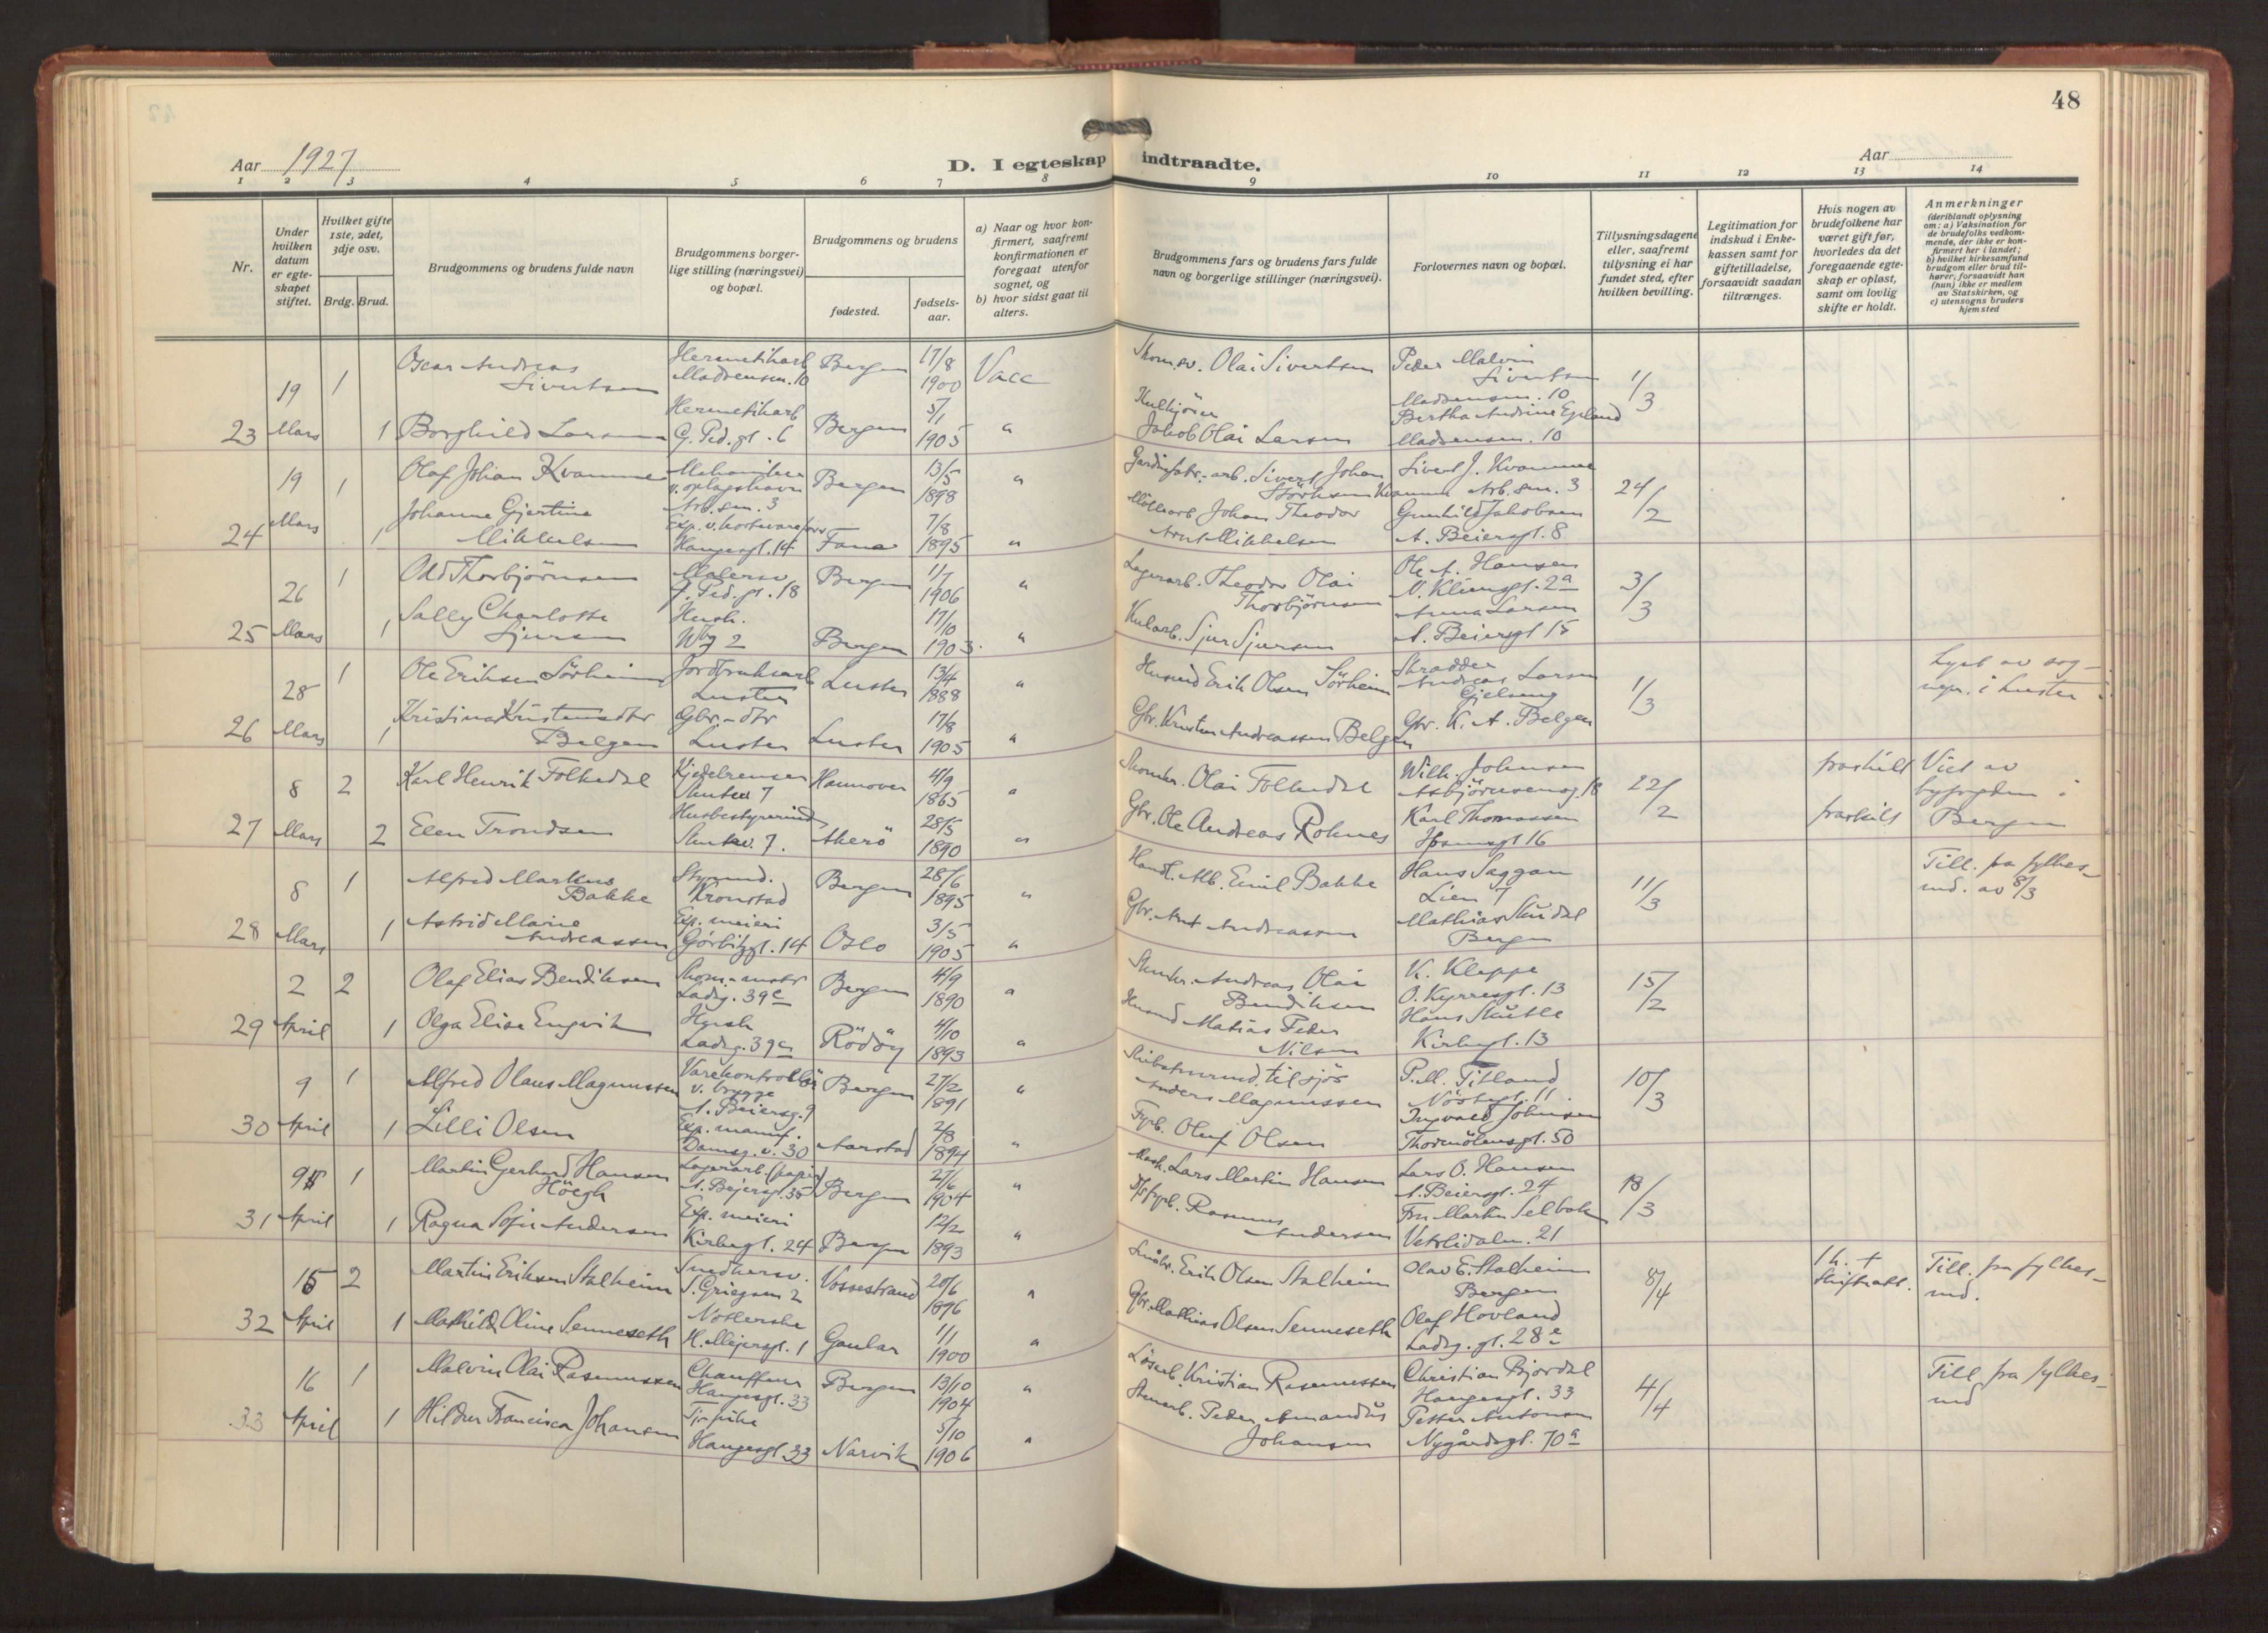 48
Aar 1927
D. I egteskap indtraadte.
Aar
1 2 3 4 5 6 7 8 9 10 11 12 13 14
Nr.
Under hvilken datum er egte-skapet stiftet.
Hvilket gifte 1ste, 2det, 3dje osv.
Brdg. Brud.
Brudgommens og brudens fulde navn
Brudgommens borger-lige stilling (næringsvei) og bopæl.
Brudgommens og brudens
fødested.
fødsels-aar.
a) Naar og hvor kon-firmert, saafremt konfirmationen er foregaat utenfor sognet, og
b) hvor sidst gaat til alters.
Brudgommens fars og brudens fars fulde navn og borgerlige stillinger (næringsvei).
Forlovernes navn og bopæl.
Tillysningsdagene eller, saafremt tillysning ei har fundet sted, efter hvilken bevilling.
Legitimation for indskud i Enke-kassen samt for giftetilladelse, forsaavidt saadan tiltrænges.
Hvis nogen av brudefolkene har været gift før, hvorledes da det foregaaende egte-skap er opløst, samt om lovlig skifte er holdt.
Anmerkninger
(deriblandt oplysning om: a) Vaksination for de brudefolks vedkom-mende, der ikke er kon-firmert her i landet; b) hvilket kirkesamfund brudgom eller brud til-hører, forsaavidt han (hun) ikke er medlem av Statskirken, og c) utensogns bruders hjemsted
19 1 Oscar Andreas Sivertsen Hermetikarb Madsensm. 10 Bergen 17/8 1900 Vacc Skom.sv. Olai Sivertsen Peder Malvin Sivertsen Madsensm. 10 1/3
23 Mars 1 Borghild Larsen Hermetikarb G. Ped. gt. 6 Bergen 5/1 1905 " Kulkjører Jakob Olai Larsen Bertha Andrine Egeland Madsensm. 10
19 1 Olaf Johan Kvamme Mekaniker v. oplagshavn Arb. sm. 3 Bergen 13/5 1898 " Sivert Johan Kvamme Sivert J. Kvamme Arb. sm. 3 24/2
24 Mars 1 Johanne Gjertine Mikkelsen Haugesgt. 14 Fana 7/8 1895 " Johan Theodor Arnt Mikkelsen Gunhild Jakobsen A. Beiersgt. 8
26 1 Odd Thorbjørnsen Malersv G. Ped. gt. 18 Bergen 11/7 1906 " Lagerarb. Theodor Olai Thorbjørnsen Ole A. Hansen N. Klimsgt. 2a 3/3
25 Mars 1 Sally Charlotte Sjursen Hush. Bergen 17/10 1903 " Kularb. Sjur Sjursen Anna Larsen A. Beiersgt 15
28 1 Ole Eriksen Sørheim Jordbruksarb Luster Luster 13/4 1888 " Husmd Erik Olsen Sørheim Skrædder Andreas Larsen Gjelsvig 1/3 Lyst av sog-nepr. i Luster
26 Mars 1 Kristina Kristensdtr Belgen Gbr.-dtr Luster Luster 17/8 1905 " Gbr. Kristen Andreassen Belgen Gbr. K. A. Belgen
8 2 Karl Henrik Folkedal Kjedelrenser Skutev 7 Hannover 4/9 1865 " Skomkr. Olai Folkedal Wilh. Johnsen Asbjørnsensg. 18 22/2 fraskilt Viet av byfogden i Bergen
27 Mars 2 Elen Trondsen Husbestyrerinde Skutev. 7. Akerø 28/5 1890 " Gbr. Ole Andreas Roknes Karl Thomassen Ibsensgt 16 fraskilt
8 1 Alfred Markus Bakke Styrmd. Kronstad Bergen 28/6 1895 " Handl. Alb. Emil Bakke Hans Saggan Lien 7 11/3 Till. fra fylkes-md. av 8/3
28 Mars 1 Astrid Marie Andreassen Exp. meieri Gørbitzgt. 14 Oslo 3/5 1905 " Gbr. Arnt Andreassen Mathias Skudal Bergen
2 2 Olaf Elias Bendiksen Ladeg. 39c Bergen 4/9 1890 " Andreas Olai Bendiksen K. Kleppe O. Kyrresgt. 13 15/2
29 April 1 Olga Elise Engvik Hush Ladeg. 39c Rödöy 4/10 1893 " Husmd Matias Peder Nilsen Hans Skutle Kirkegt. 13
9 1 Alfred Olaus Magnussen Varekontrollør v. brygge A. Beiersg. 9 Bergen 27/2 1891 " Anders Magnussen P. M. Titland Nöstegt. 11. 10/3
30 April 1 Lilli Olsen Exp. manuf. Damsg. v. 30 Aarstad 2/8 1894 " Fyrb. Oluf Olsen Ingvald Johnsen Thormølensgt. 50
9 1 Martin Gerhard Hansen Höegh Lagerarb. (papir) A. Beyersgt. 35 Bergen 27/6 1904 " Mask. Lars Martin Hansen Lars O. Hansen A. Beiersgt. 24 18/3
31 April 1 Ragna Sofie Andersen Exp. meieri Kirkegt. 24 Bergen 12/2 1893 " Rasmus Andersen Fru Martha Selbak Vetrlidalm. 21
16 2 Martin Eriksen Stalheim Snedkersv. S. Griegsm 2 Vossestrand 20/6 1896 " Småbr. Erik Olsen Stalheim Olav E. Stalheim Bergen 8/4 1 h. † Skifteatt. Till. fra fylkes-md.
32 April 1 Mathilde Oline Senneseth H. Meyersgt. 1 Gaular 1/1 1900 " Gbr. Mathias Olsen Senneseth Olaf Hovland Ladeg. gt. 28e
16 1 Malvin Olai Rasmussen Chauffeur Haugesgt. 33 Bergen 13/10 1904 " Løsarb. Kristian Rasmussen Christian Bjordal Haugesgt. 33 4/4 Till fra fylkes-md
33 April 1 Hildur Francisca Johansen Tj.pike Haugesgt 33 Narvik 5/10 1906 " Stenarb. Peder Amandus Johansen Petter Antonsen Nygårdsgt. 70a